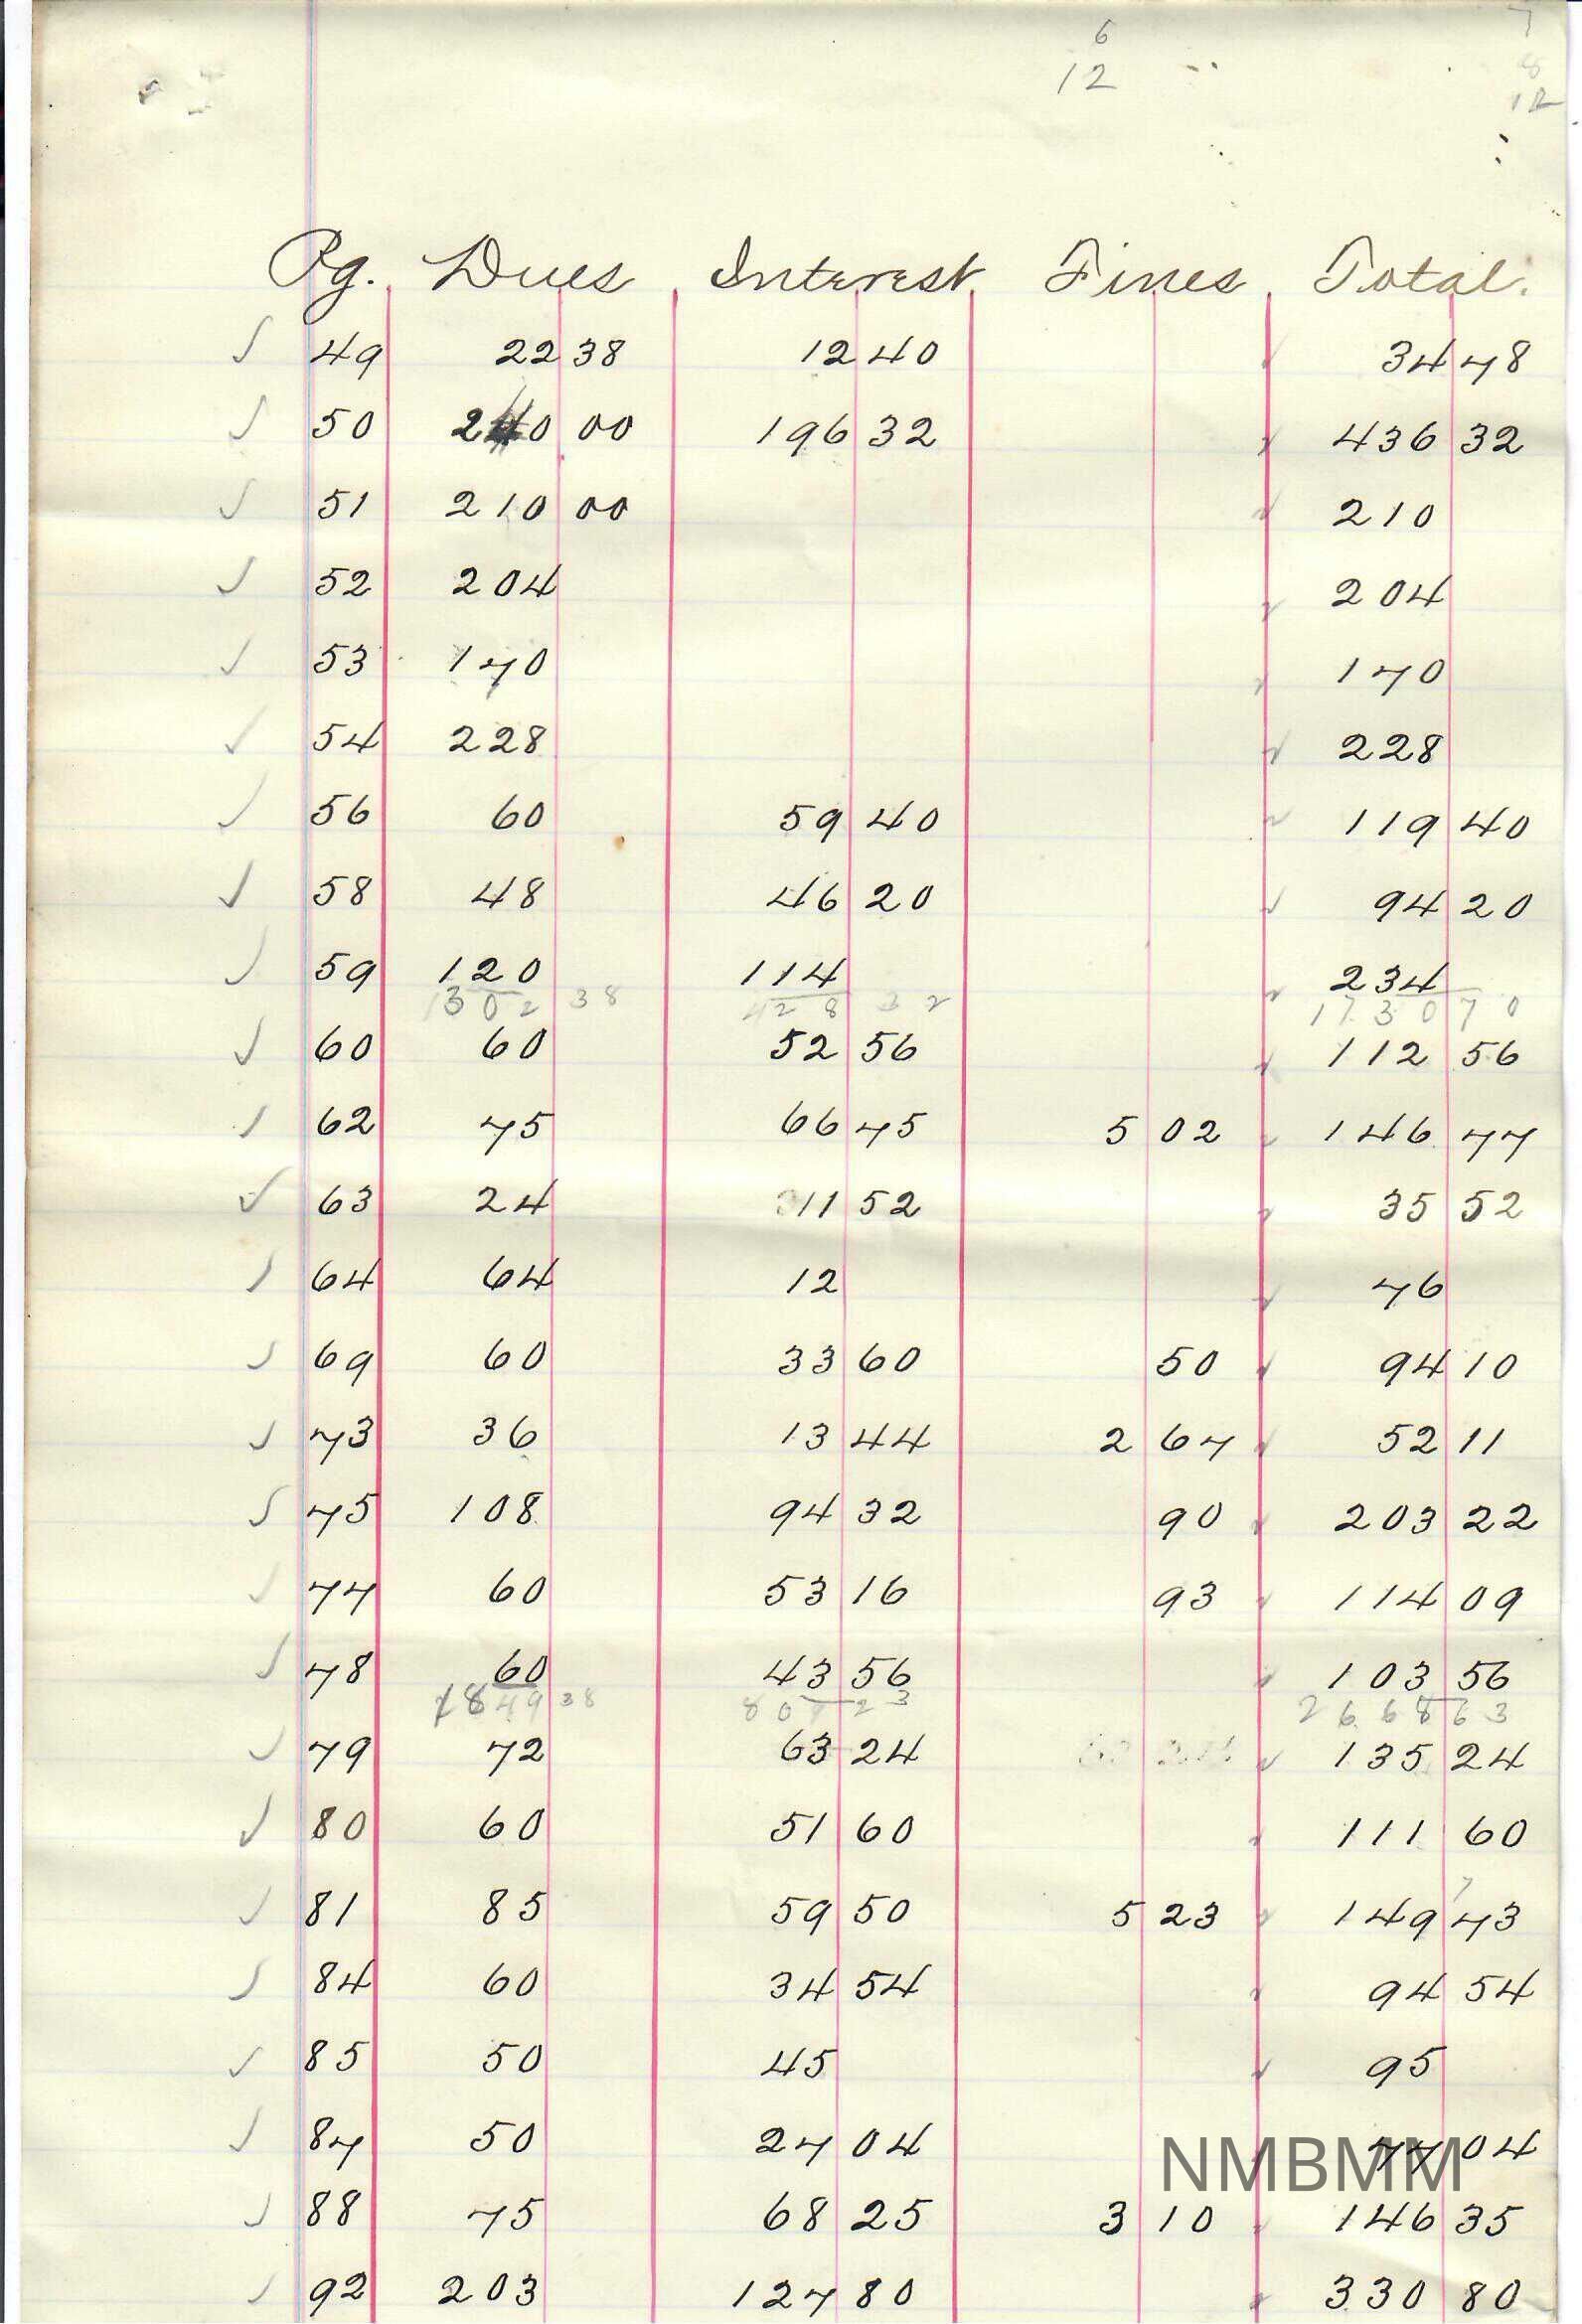 6 7
12 8
12
Pg. Dues Interest Fines Total.
✓ 49 22 38 12 40 ✓ 34 78
✓ 50 240 00 196 32 ✓ 436 32
✓ 51 210 00 ✓ 210
✓ 52 204 ✓ 204
✓ 53 170 ✓ 170
✓ 54 228 ✓ 228
✓ 56 60 59 40 ✓ 119 40
✓ 58 48 46 20 ✓ 94 20
✓ 59 120 114 ✓ 234
1302 38 428 32 1730 70
✓ 60 60 52 56 ✓ 112 56
✓ 62 75 66 75 5 02 ✓ 146 77
✓ 63 24 11 52 ✓ 35 52
✓ 64 64 12 ✓ 76
✓ 69 60 33 60 50 ✓ 94 10
✓ 73 36 13 44 2 67 ✓ 52 11
✓ 75 108 94 32 90 ✓ 203 22
✓ 77 60 53 16 93 ✓ 114 09
✓ 78 60 43 56 ✓ 103 56
1849 38 807 23 2668 63
✓ 79 72 63 24 ✓ 135 24
✓ 80 60 51 60 ✓ 111 60
✓ 81 85 59 50 5 23 ✓ 149 73
✓ 84 60 34 54 ✓ 94 54
✓ 85 50 45 ✓ 95
✓ 87 50 27 04 77 04
NMBMM
✓ 88 75 68 25 3 10 ✓ 146 35
✓ 92 203 127 80 ✓ 330 80